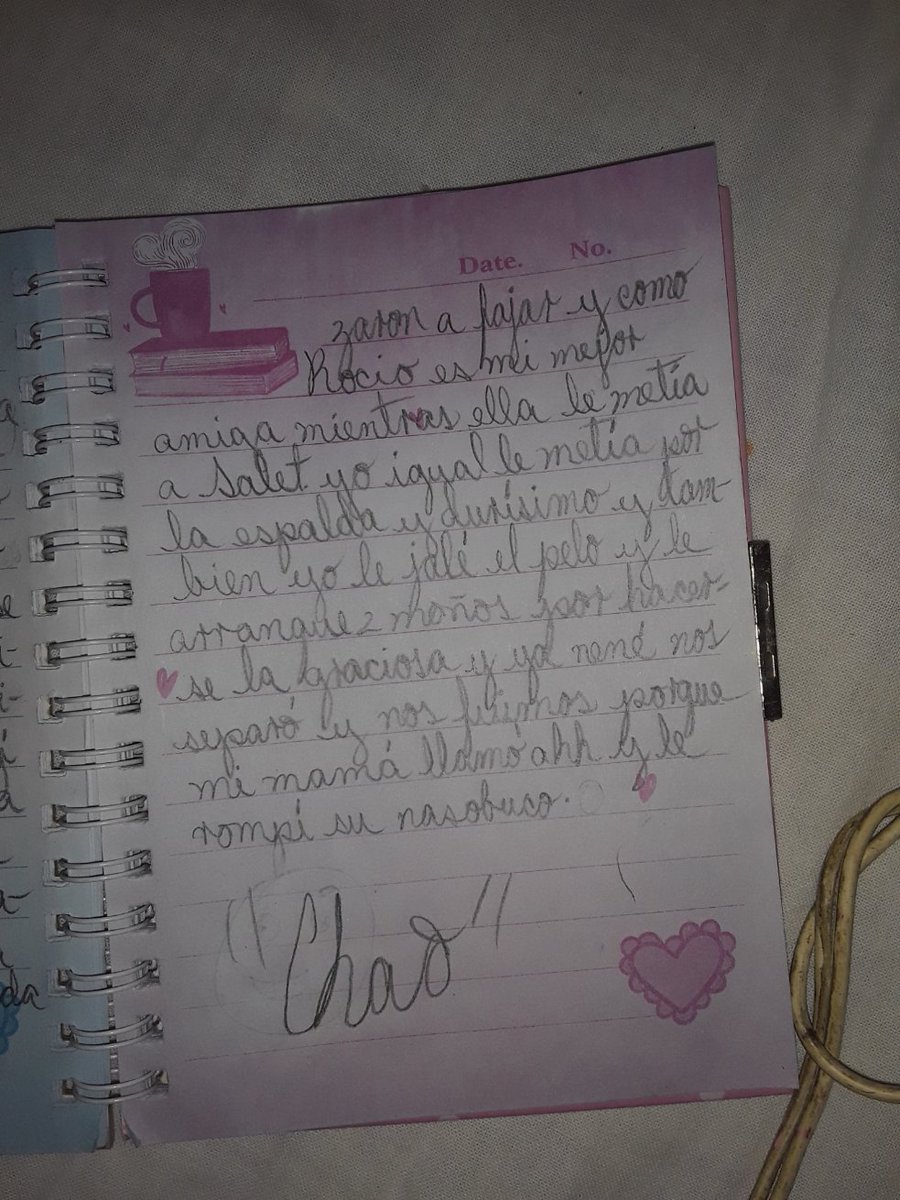 Date. No.
zaron a fajar y como
Rocio es mi mejor
amiga mientras ella le metía
a Salet yo igual le metía por
la espalda y durísimo y tam-
bien yo le jalé el pelo y le
arranque 2 moños por hacer-
se la graciosa y ya nené nos
separó y nos fuimos porque
mi mamá llamó ahh y le
rompí su nasobuco.
"Chao"